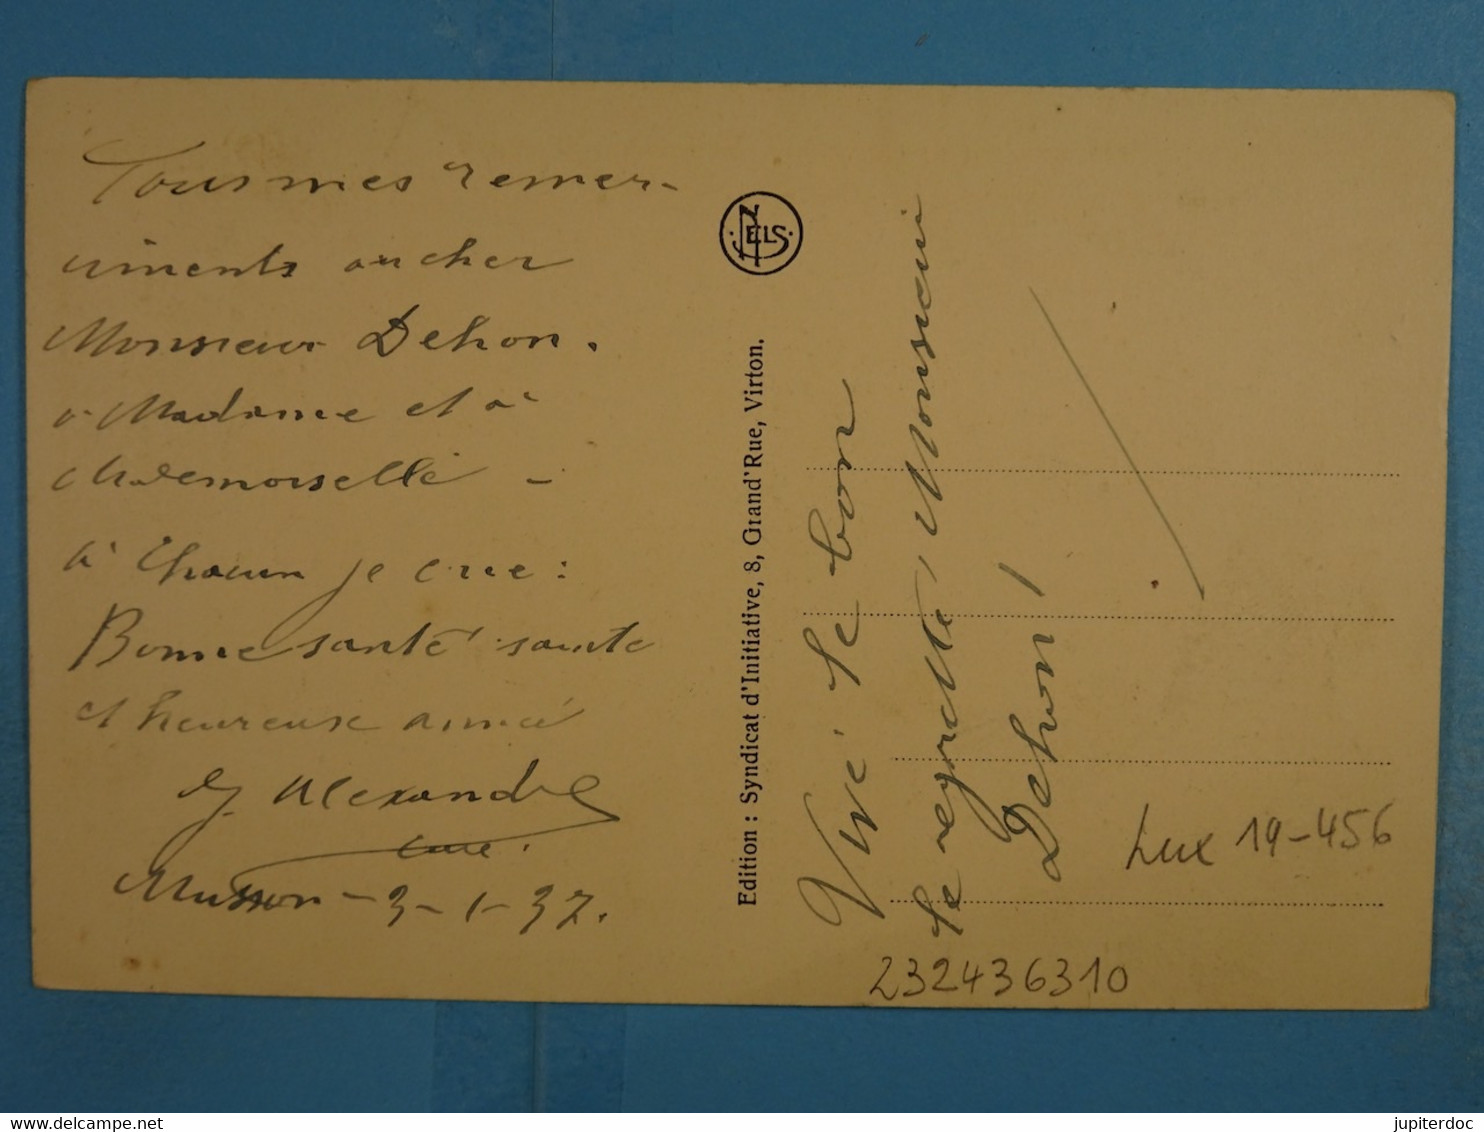 Tous mes remer-
ciments au cher
Monsieur Dehon.
à Madame et à
Mademoiselle -
à chacun je crie :
Bonne santé sainte
et heureuse année
J. Alexandre
curé.
Musson - 3-1-37.
NELS
Edition : Syndicat d'Initiative, 8, Grand'Rue, Virton.
Vive le bon
le regretté Monsieur
Dehon !
Lux 19-456
232436310
www.delcampe.net
jupiterdoc